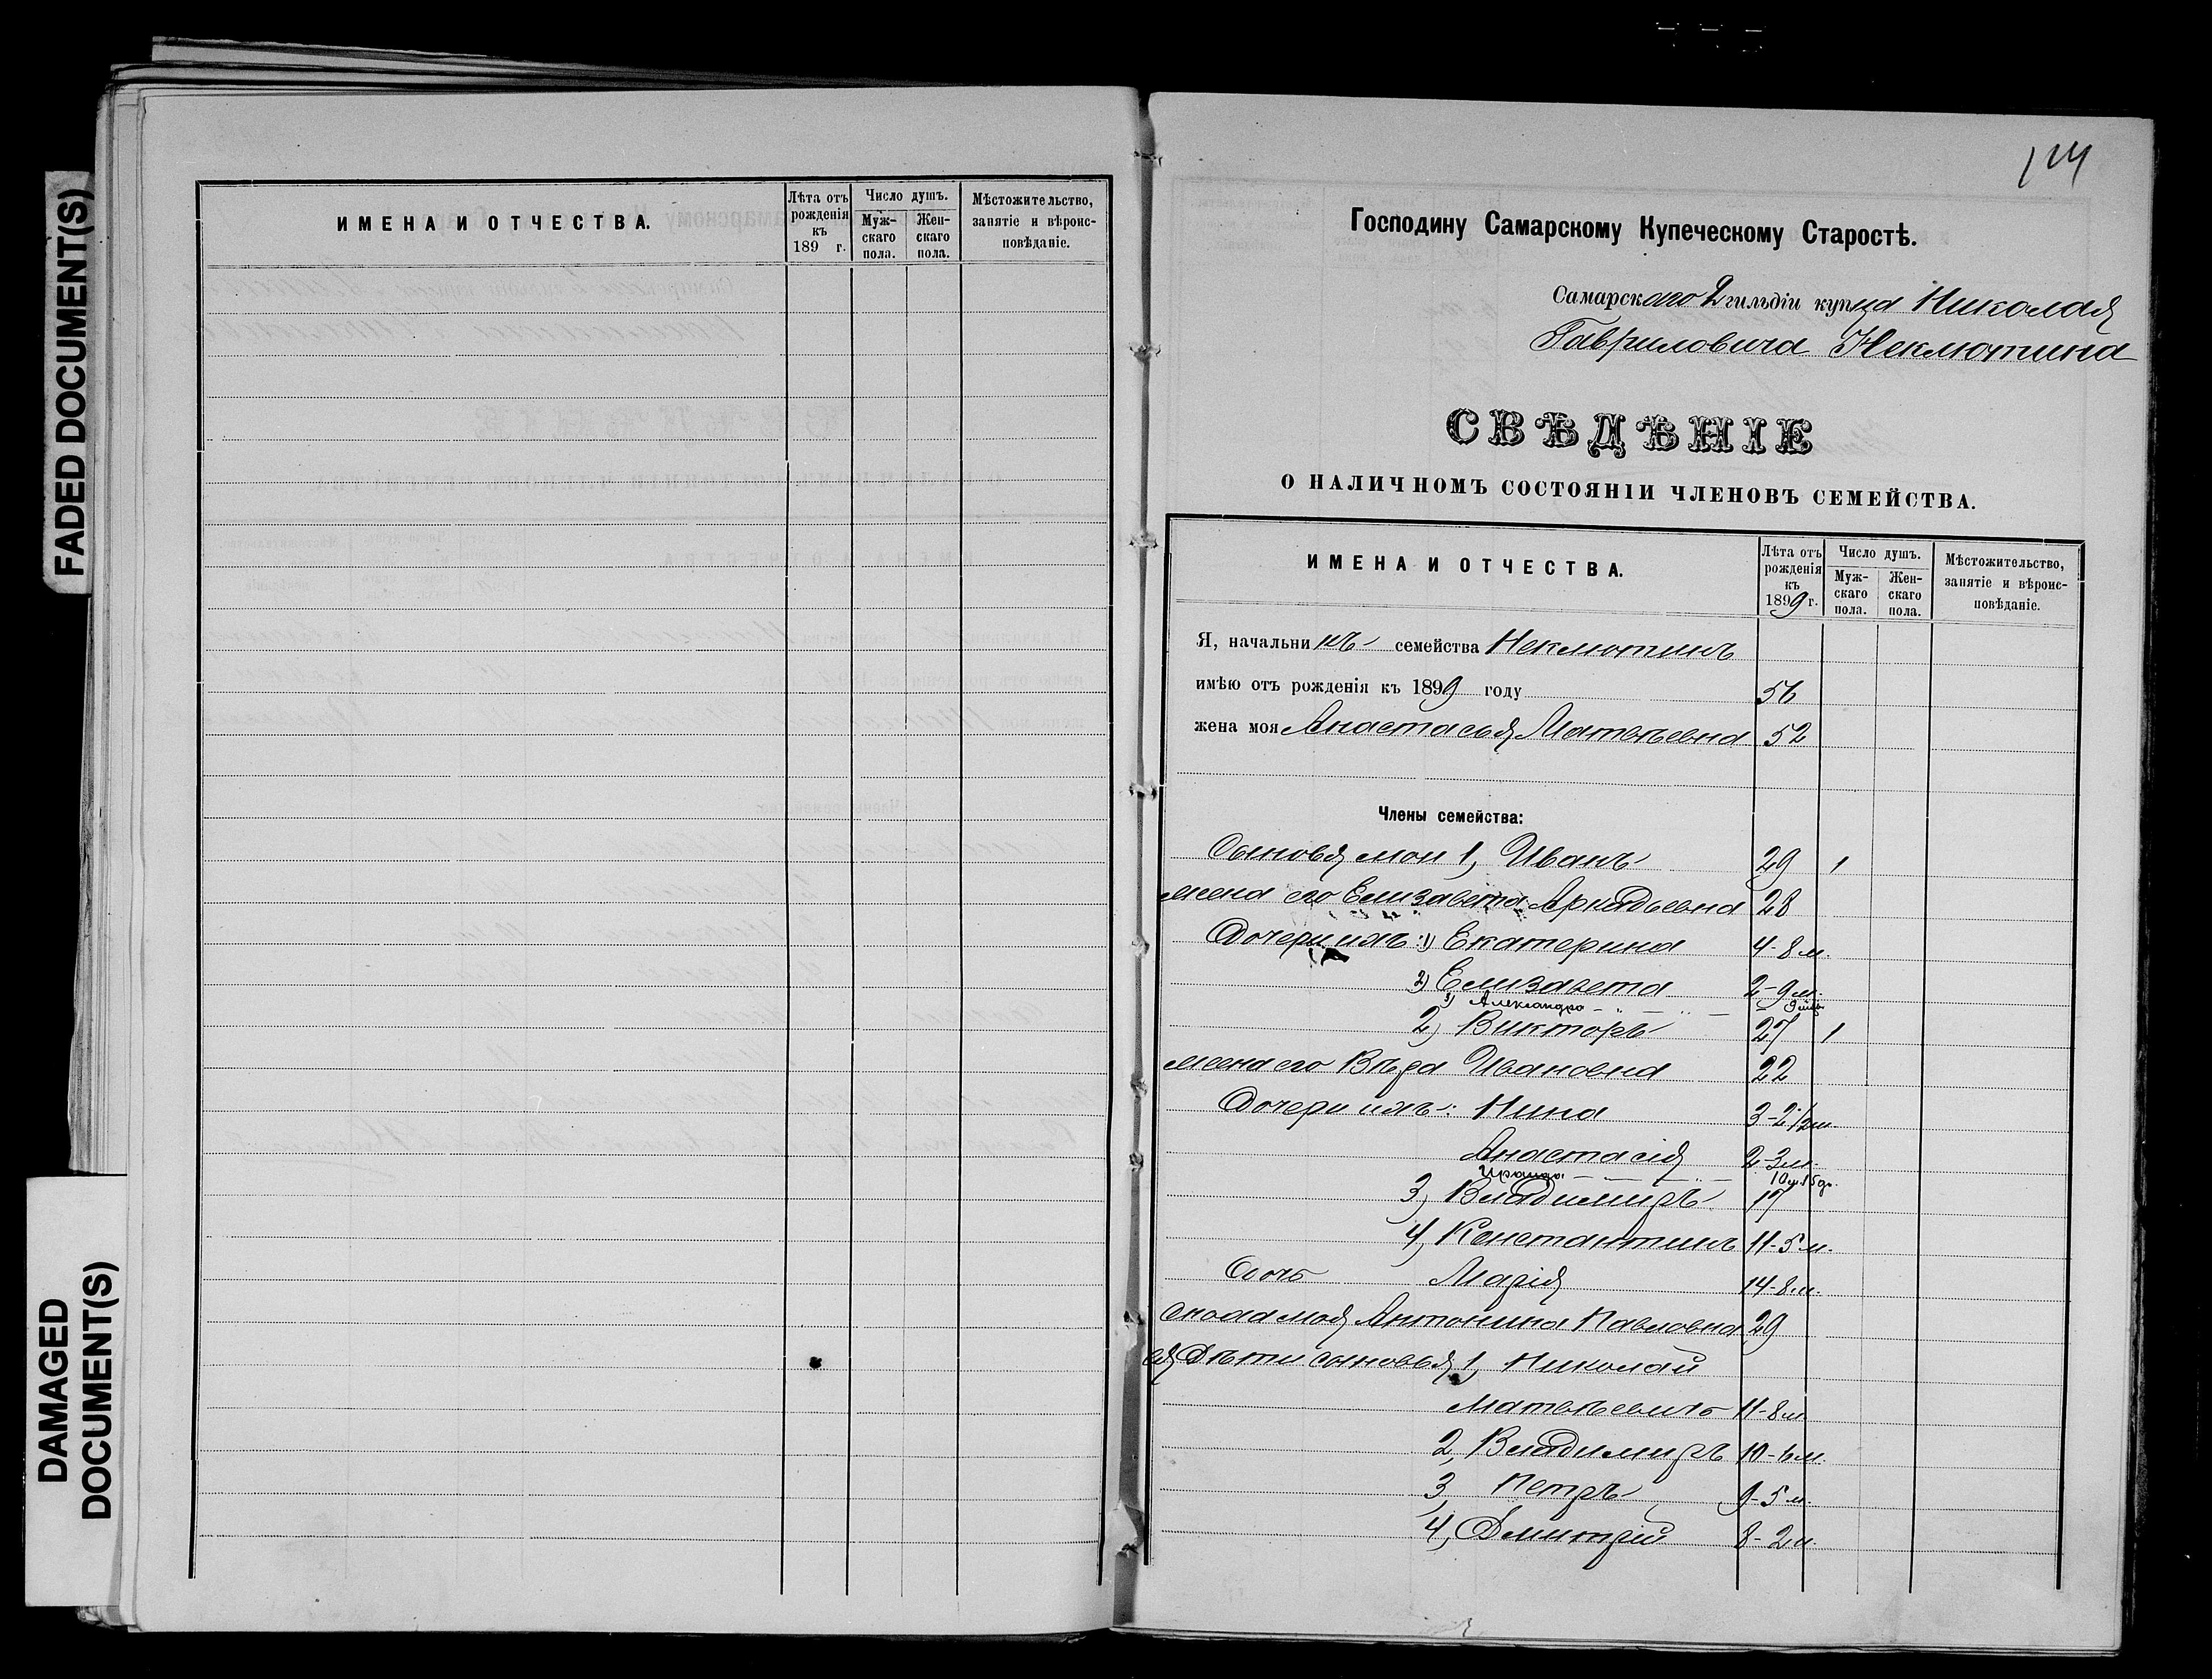 FADED DOCUMENT(S)
DAMAGED
DOCUMENT(S)
ИМЕНА И ОТЧЕСТВА.
Лѣта отъ рожденія къ 189 г.
Число душъ.
Мужскаго пола.
Женскаго пола.
Мѣстожительство, занятіе и вѣроисповѣданіе.
Господину Самарскому Купеческому Старостѣ.
Самарскаго 2 гильдіи купца Николая
Гавриловича Неклютина
СВѢДѢНІЕ
О НАЛИЧНОМЪ СОСТОЯНІИ ЧЛЕНОВЪ СЕМЕЙСТВА.
ИМЕНА И ОТЧЕСТВА.
Лѣта отъ рожденія къ 1899 г.
Число душъ.
Мужскаго пола.
Женскаго пола.
Мѣстожительство, занятіе и вѣроисповѣданіе.
Я, начальникъ семейства Неклютинъ
имѣю отъ рожденія къ 1899 году 56
жена моя Анастасья Матвѣевна 52
Члены семейства:
Сыновья мои 1, Иванъ 29 1
жена его Елизавета Аркадьевна 28
Дочери ихъ: 1) Екатерина 4-8 м.
2) Елизавета 2-9 м.
3) Александра
2) Викторъ 27 1
жена его Вѣра Ивановна 22
Дочери ихъ: Нина 3-2 1/2 м.
Анастасія 2-3 м.
Ираида 10 м. 15 д.
3, Владимиръ 17
4, Константинъ 11-5 м.
Дочь Марія 14-8 м.
сноха моя Антонина Павловна 29
ея Дѣти сыновья 1, Николай
Матвѣевичъ 11-8 м
2, Владимиръ 10-6 м.
3, Петръ 9-5 м.
4, Дмитрій 8-2 м.